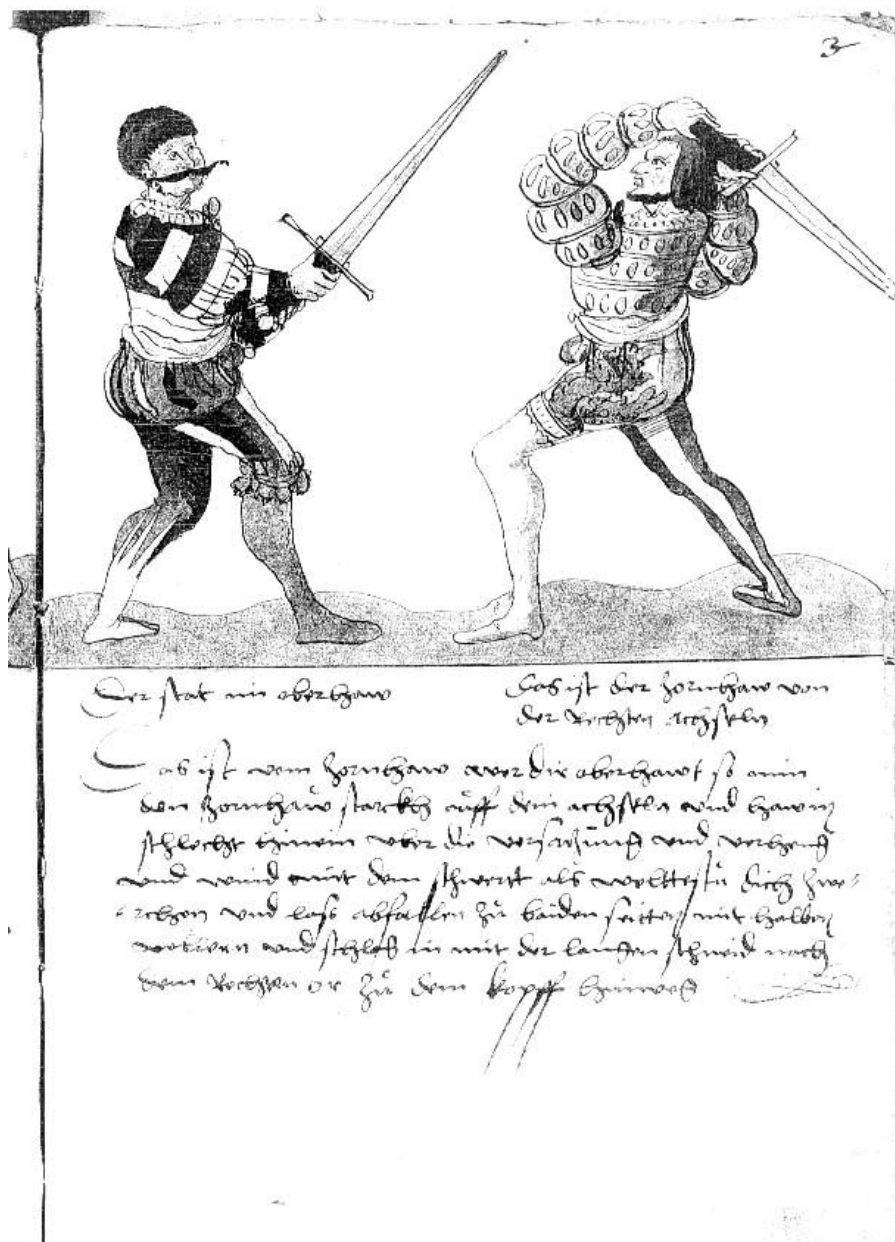 3
Der stat im oberhaw
Das ist der zornhaw von
der Rechten achseln
Das ist vom zornhaw wer dir oberhawt so nim
den zornhaw starckh auff dein achseln und haw in
schlecht hinein uber die versatzung und verheng
und wind mit dem schwertt als welltestu dich zwe-
rchen und lass abfallen zu baiden seitten mit halben
und schlag in mit der langen schneid nach
dem Rechten or zu dem kopff hinweg